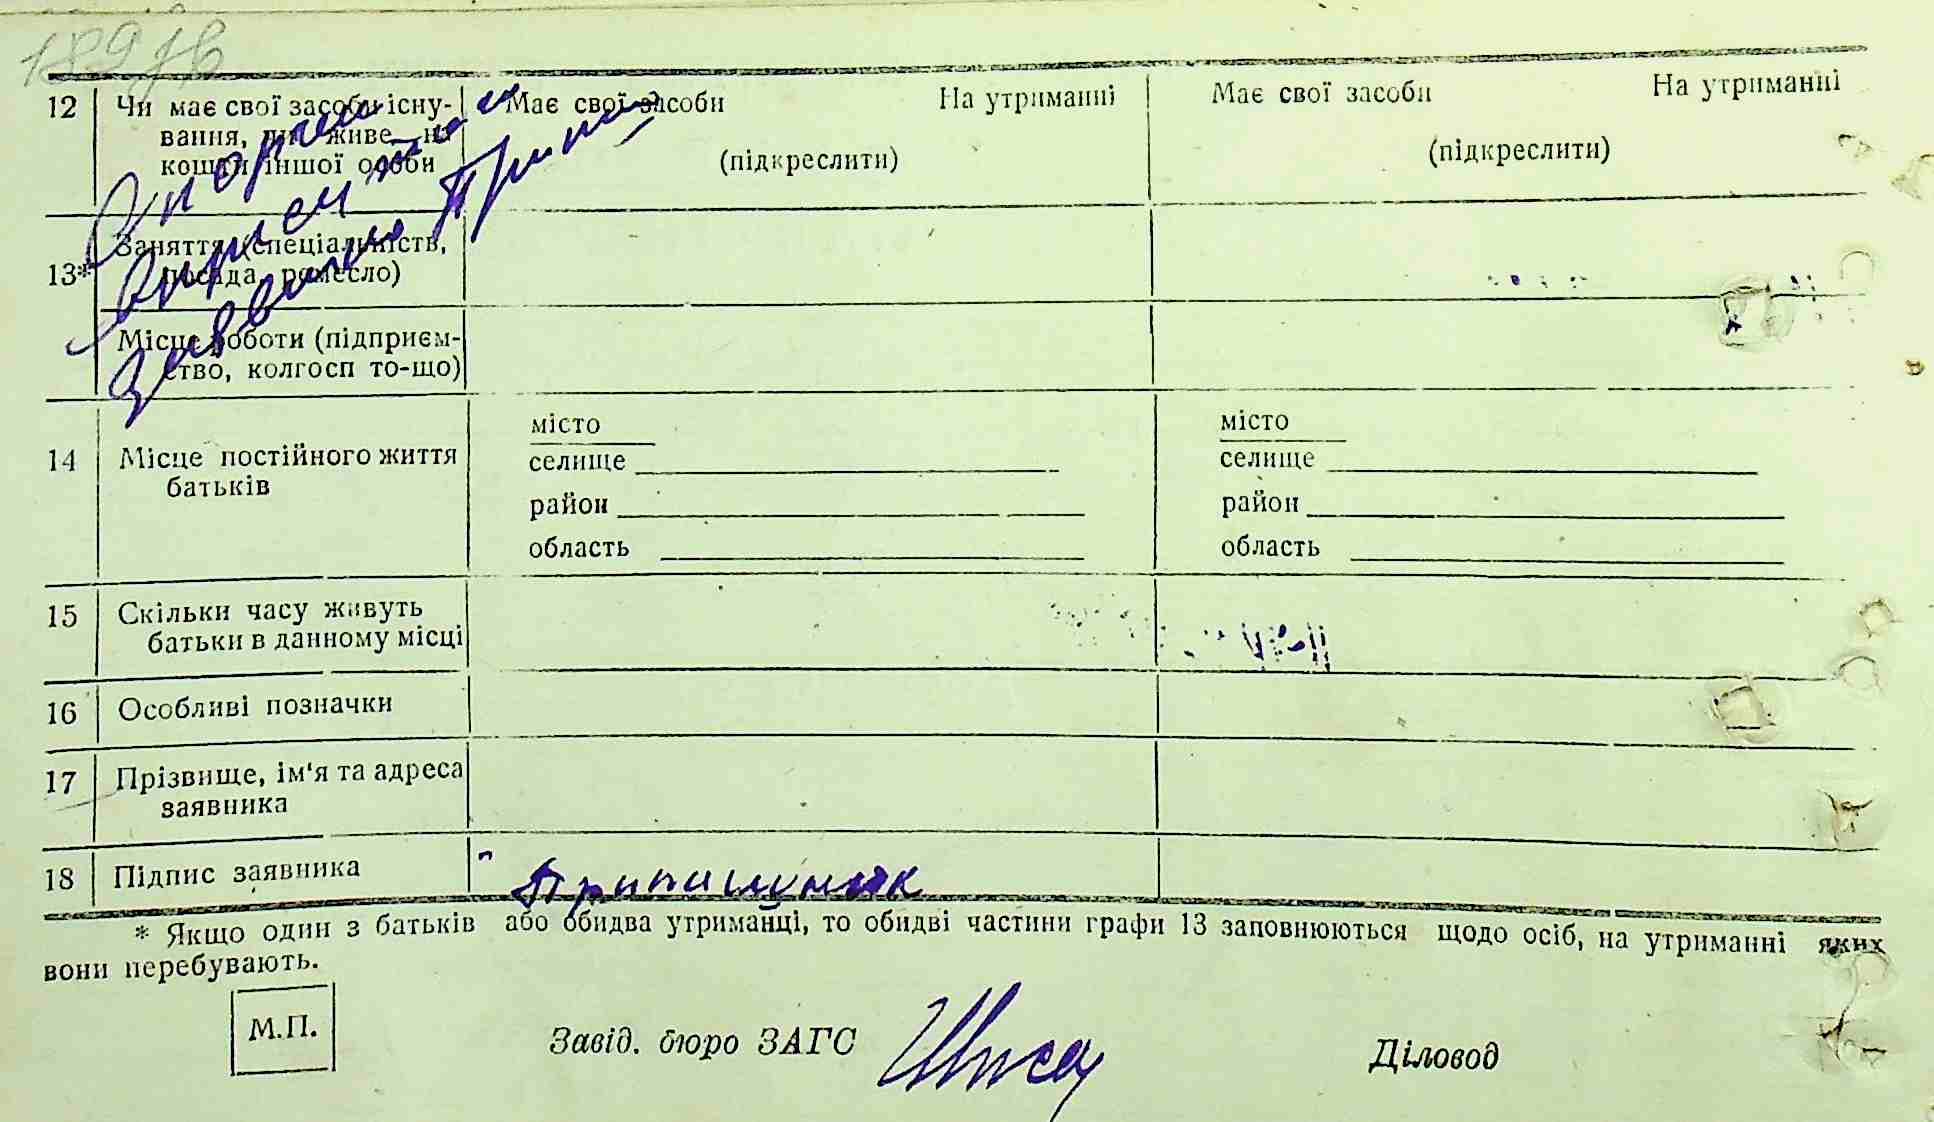 12 Чи має свої засоби існу- Має свої засоби На утриманні Має свої засоби На утриманні
вання, чи живе на
кошти іншої особи (підкреслити) (підкреслити)
13* Заняття (спеціальність,
посада, ремесло)
Місце роботи (підприєм-
ство, колгосп то-що)
14 Місце постійного життя
батьків
місто місто
селище селище
район район
область область
15 Скільки часу живуть
батьки в данному місці
16 Особливі позначки
17 Прізвище, ім'я та адреса
заявника
18 Підпис заявника
* Якщо один з батьків або обидва утриманці, то обидві частини графи 13 заповнюються щодо осіб, на утриманні яких
вони перебувають.
М.П. Завід. бюро ЗАГС Діловод